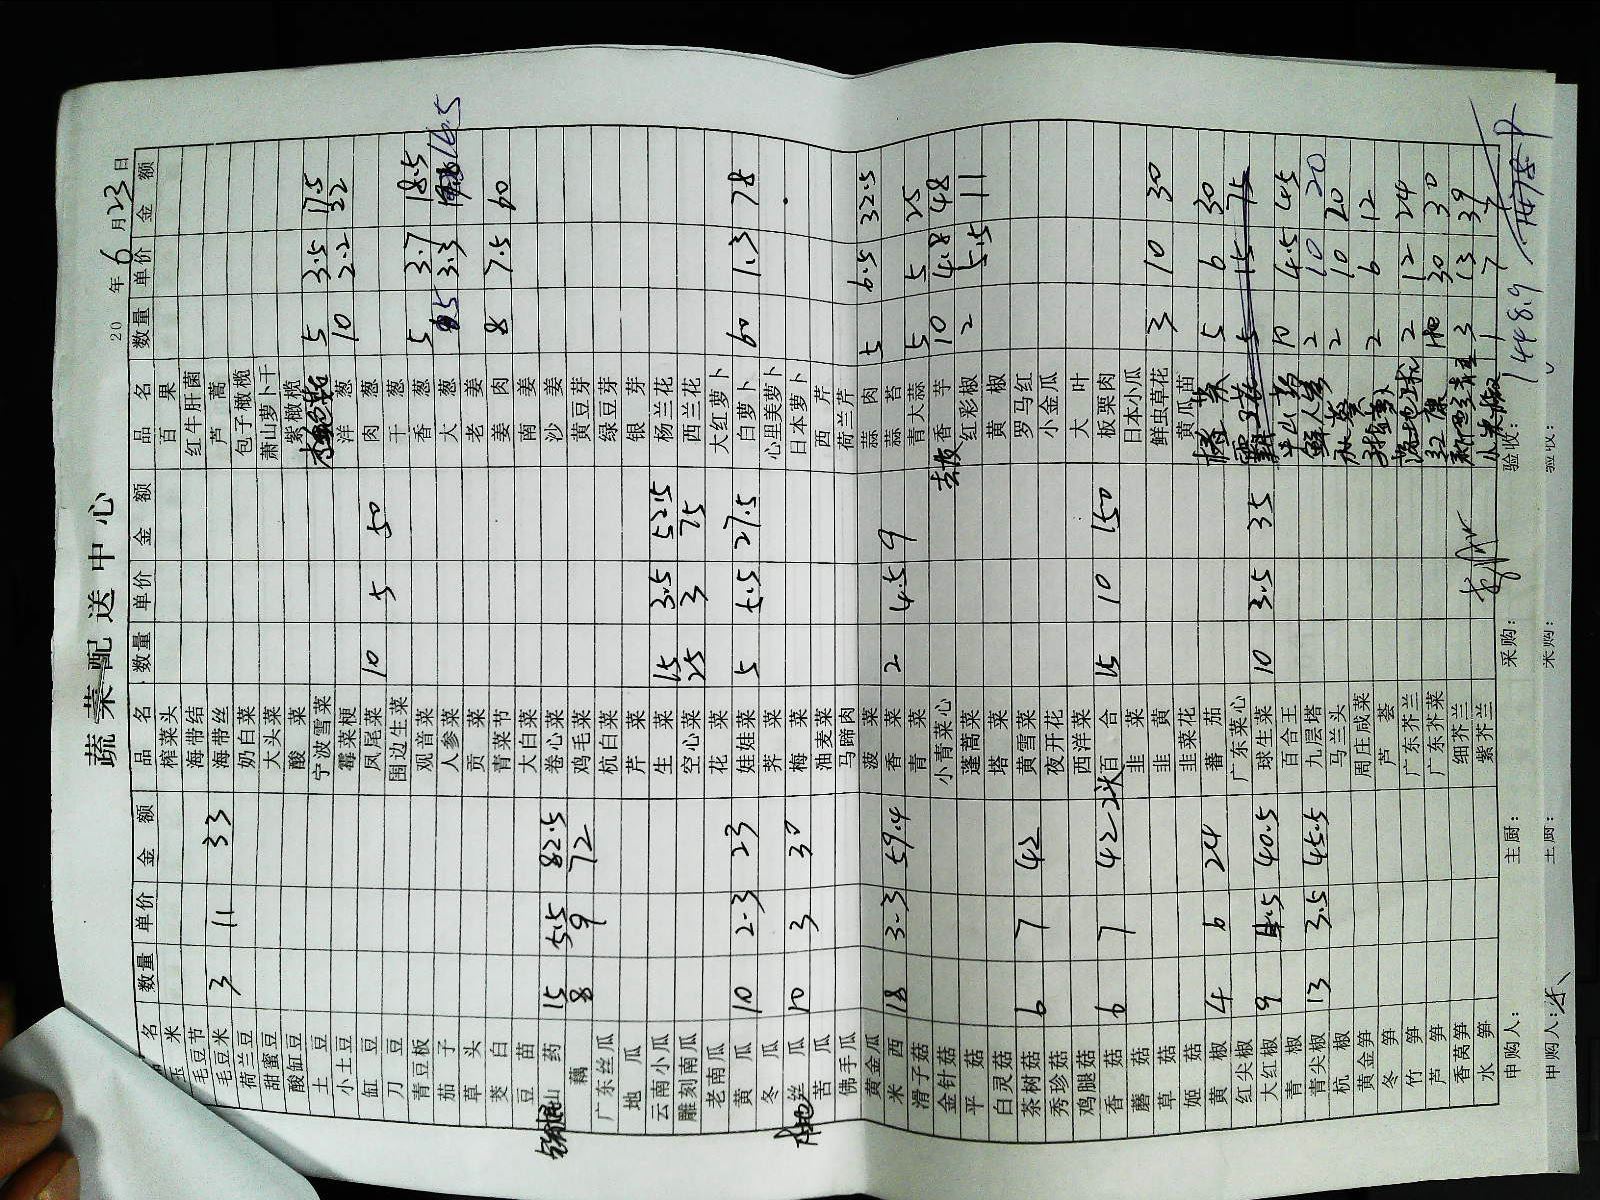 蔬菜配送中心
20 年 6 月 23 日
品名 数量 单价 金额 品名 数量 单价 金额 品名 数量 单价 金额
玉米 榨菜头 百果
毛豆节 海带结 红牛肝菌
毛豆米 3 11 33 海带丝 芦蒿
荷兰豆 奶白菜 包子橄榄
甜蜜豆 大头菜 萧山萝卜干
酸缸豆 酸菜 紫橄榄
土豆 宁波雪菜 5 3.5 17.5
小土豆 霉菜梗 洋葱 10 2.2 22
缸豆 凤尾菜 10 5 50 肉葱
刀豆 围边生菜 干葱
青豆板 观音菜 香葱 5 3.7 18.5
茄子 人参菜 大葱 5 3.3 16.5
草头 贡菜 老姜
茭白 青菜节 姜肉 8 7.5 60
豆苗 大白菜 南姜
山药 15 5.5 82.5 卷心菜 沙姜
藕 8 9 72 鸡毛菜 黄豆芽
广东丝瓜 杭白菜 绿豆芽
地瓜 芹菜 银芽
云南小瓜 生菜 15 3.5 52.5 杨兰花
雕刻南瓜 空心菜 25 3 75 西兰花
老南瓜 花菜 大红萝卜
黄瓜 10 2.3 23 娃娃菜 5 5.5 27.5 白萝卜 60 1.3 78
冬瓜 荠菜 心里美萝卜
本地丝瓜 10 3 30 梅菜 日本萝卜
苦瓜 油麦菜 西芹
佛手瓜 马蹄肉 荷兰芹
黄金瓜 菠菜 蒜肉 5 6.5 32.5
米西 18 3.3 59.4 香菜 2 4.5 9 蒜苔
滑子菇 青菜 青大蒜 5 5 25
金针菇 小青菜心 去皮香芋 10 4.8 48
平菇 蓬蒿菜 红彩椒 2 5.5 11
白灵菇 塔菜 黄椒
茶树菇 6 7 42 黄雪菜 罗马红
秀珍菇 夜开花 小金瓜
鸡腿菇 西洋菜 大叶
香菇 6 7 42 2头百合 15 10 150 板栗肉
蘑菇 韭菜 日本小瓜
草菇 韭黄 鲜虫草花 3 10 30
姬菇 韭菜花 黄瓜苗
黄椒 4 6 24 番茄 5 6 30
红尖椒 广东菜心 5 15 75
大红椒 9 4.5 40.5 球生菜 10 3.5 35 山药 10 4.5 45
青椒 百合王 2 10 20
青尖椒 13 3.5 45.5 九层塔 2 10 20
杭椒 马兰头 2 6 12
黄金笋 周庄咸菜
冬笋 芦荟 2 12 24
竹笋 广东芥兰 30 30
芦笋 广东芥菜 3 13 39
香莴笋 细芥兰 小米椒 1 7 7
水笋 紫芥兰
申购人： 主厨： 采购： 验收： 1448.9
申购人： 主厨： 采购： 验收：